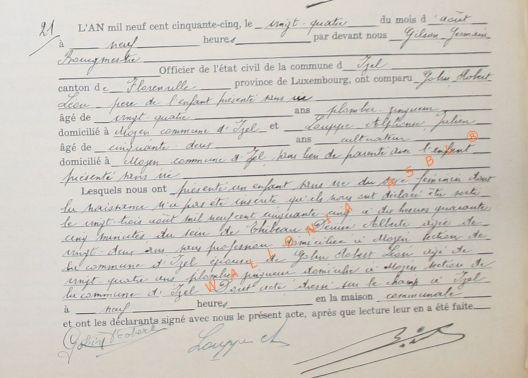 21
L'AN mil neuf cent cinquante-cinq, le vingt-quatre du mois d'août
à neuf heures par devant nous Gilson Germain
Bourgmestre
Officier de l'état civil de la commune d'Izel
canton de Florenville province de Luxembourg, ont comparu Golin Robert
Léon, père de l'enfant présenté sans vie
âgé de vingt quatre ans plombier zingueur
domicilié à Moyen commune d'Izel et Louppe Alphonse Julien
âgé de cinquante deux ans cultivateur
domicilié à Moyen commune d'Izel sans lien de parenté avec l'enfant
présenté sans vie
Lesquels nous ont présenté un enfant sans vie du sexe féminin dont
la naissance n'a pas été inscrite qu'ils nous ont déclaré être sorti
le vingt-trois août mil neuf cent cinquante cinq à dix heures quarante
cinq minutes du sein de Thibeau Denise Alberte âgée de
vingt deux ans sans profession domiciliée à Moyen section de
la commune d'Izel épouse de Golin Robert Léon âgé de
vingt quatre ans plombier zingueur domicilié à Moyen section de
la commune d'Izel Dont acte dressé sur le champ à Izel
à neuf heures en la maison communale
et ont les déclarants signé avec nous le présent acte, après que lecture leur en a été faite
Golin Robert Louppe A